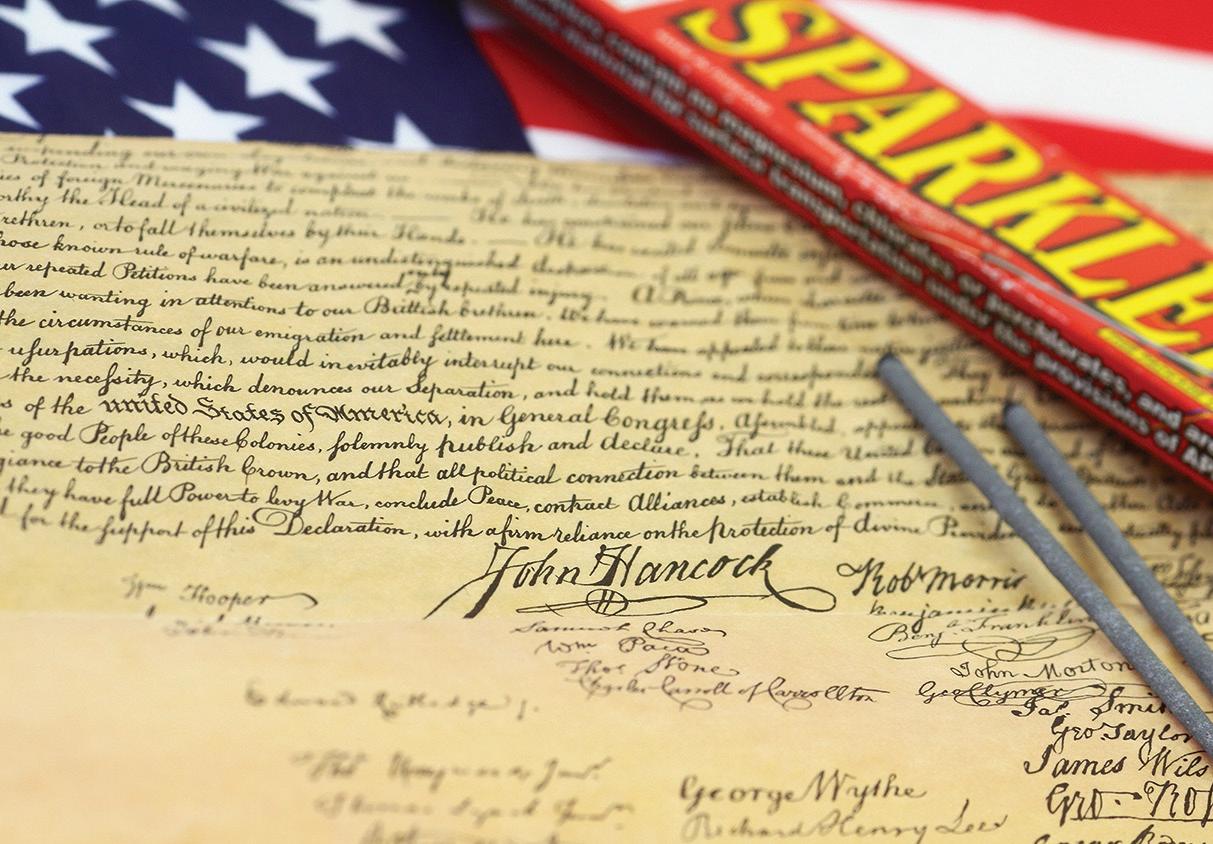 SPARKLE
contain no magnesium, chlorates or perchlorates, and are
for surface transportation under the provisions of
Protection and waging War against
of foreign Mercenaries to compleat the works of death
the Head of a civilized nation.
or to fall themselves by their Hands. — He has excited
known rule of warfare, is an undistinguished destruction of all ages
repeated Petitions have been answered only by repeated injury. A Prince
been wanting in attentions to our Brittish brethren. We have warned them from time
the circumstances of our emigration and settlement here. We have appealed to their
usurpations, which, would inevitably interrupt our connections and correspondence They
the necessity, which denounces our Separation, and hold them, as we hold the rest
of the united States of America, in General Congress, Assembled, appealing to the
good People of these Colonies, solemnly publish and declare, That these United
to the British Crown, and that all political connection between them and the State
they have full Power to levy War, conclude Peace, contract Alliances, establish Commerce
for the support of this Declaration, with a firm reliance on the Protection of divine
John Hancock
Wm Hooper
Robt Morris
Samuel Chase
Benj. Franklin
Wm Paca
Thos Stone
John Morton
Charles Carroll of Carrollton
Geo Clymer
Jas. Smi
Edward Rutledge
Geo Taylor
James Wils
George Wythe
Richard Henry Lee